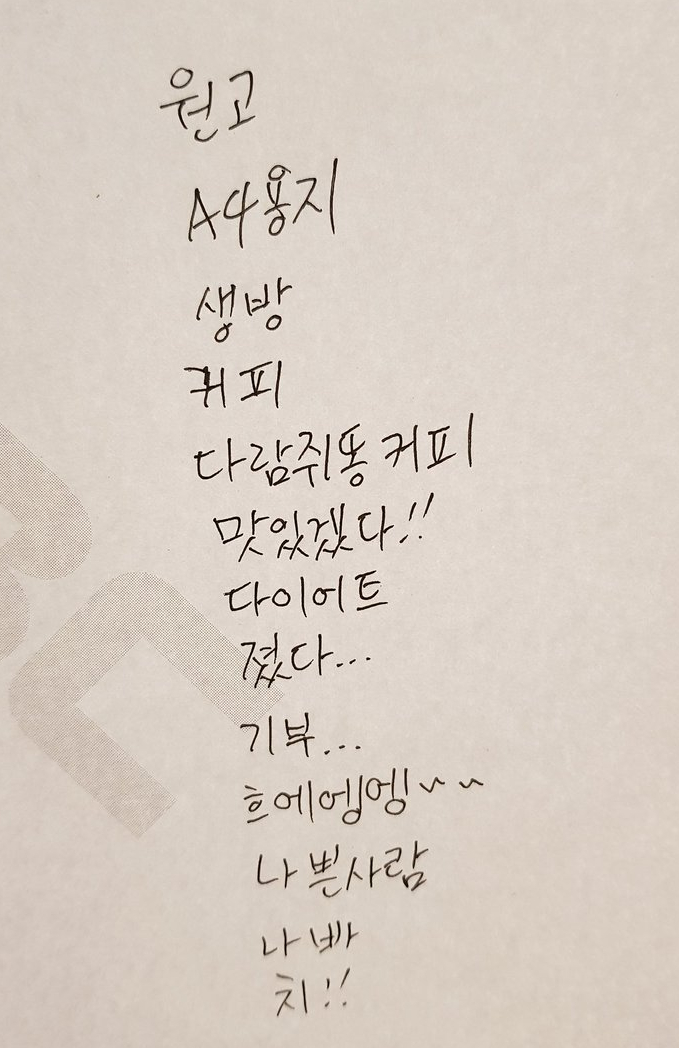 원고
A4용지
생방
커피
다람쥐똥 커피
맛있겠다!!
다이어트
졌다...
기부...
흐에엥엥~~
나쁜사람
나빠
치!!